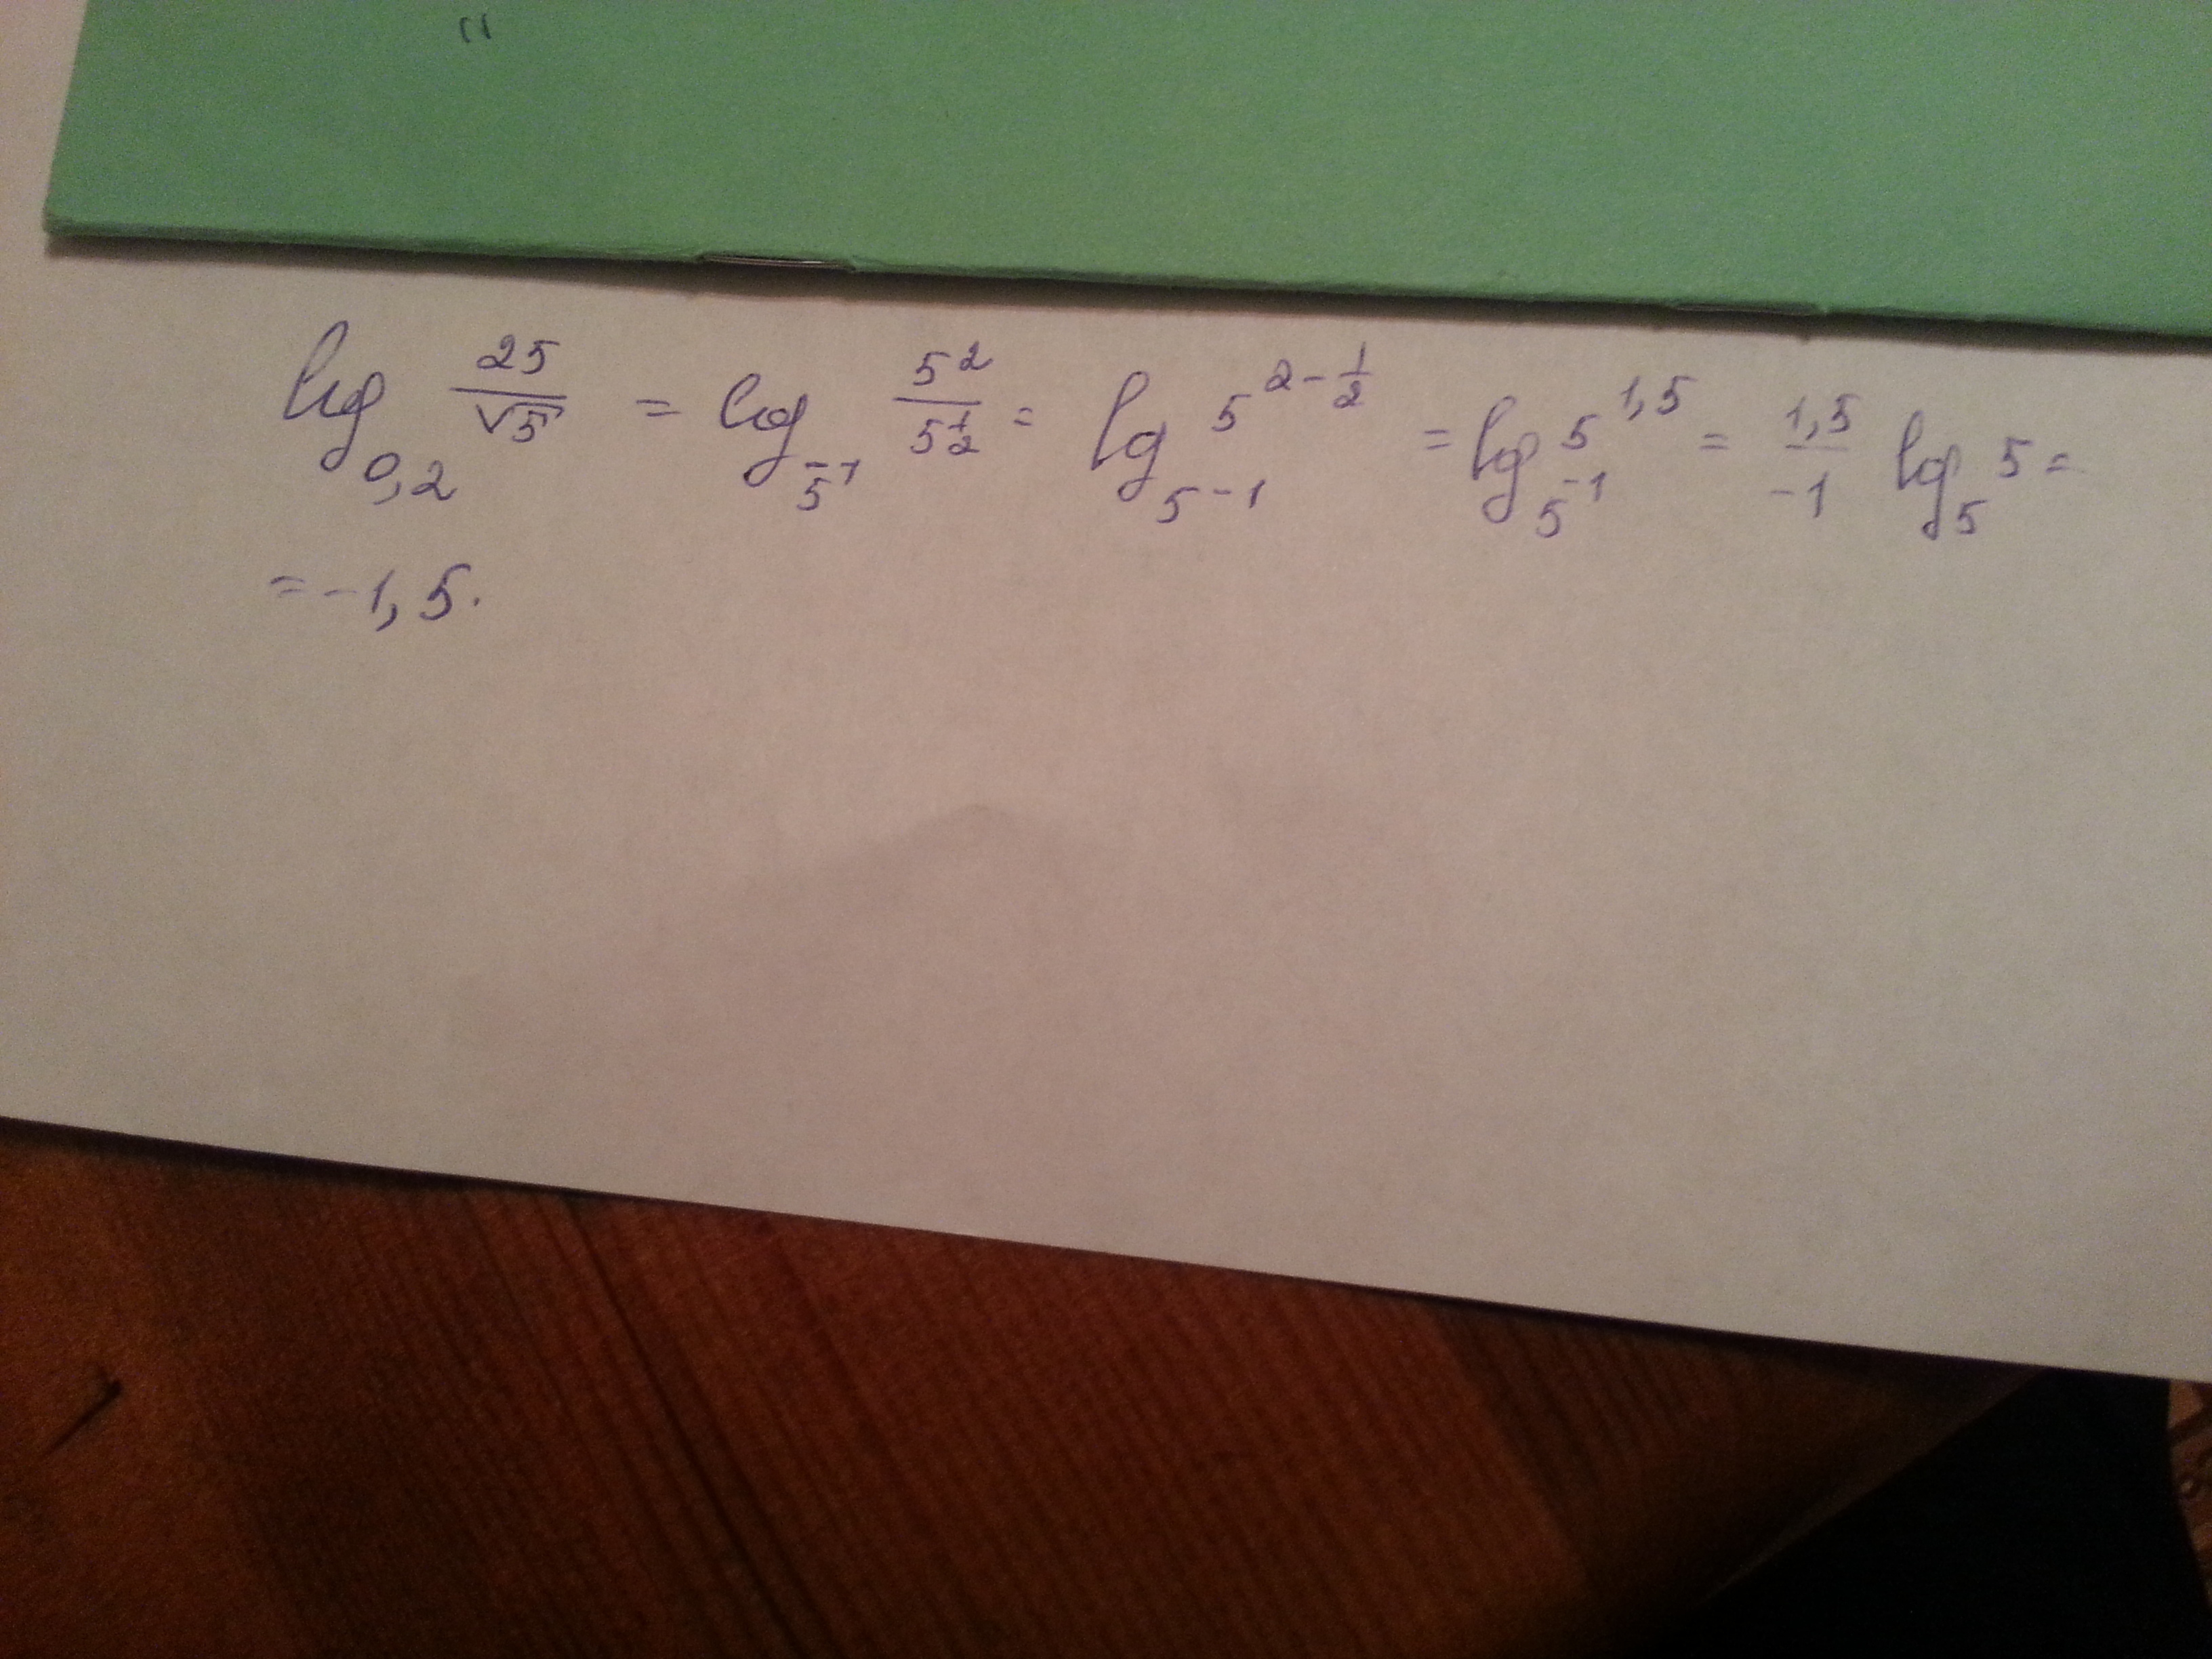 log_{0,2} \frac{25}{\sqrt{5}} = log_{5^{-1}} \frac{5^2}{5^{\frac{1}{2}}} = log_{5^{-1}} 5^{2-\frac{1}{2}} = log_{5^{-1}} 5^{1,5} = \frac{1,5}{-1} log_5 5 =
= -1,5.